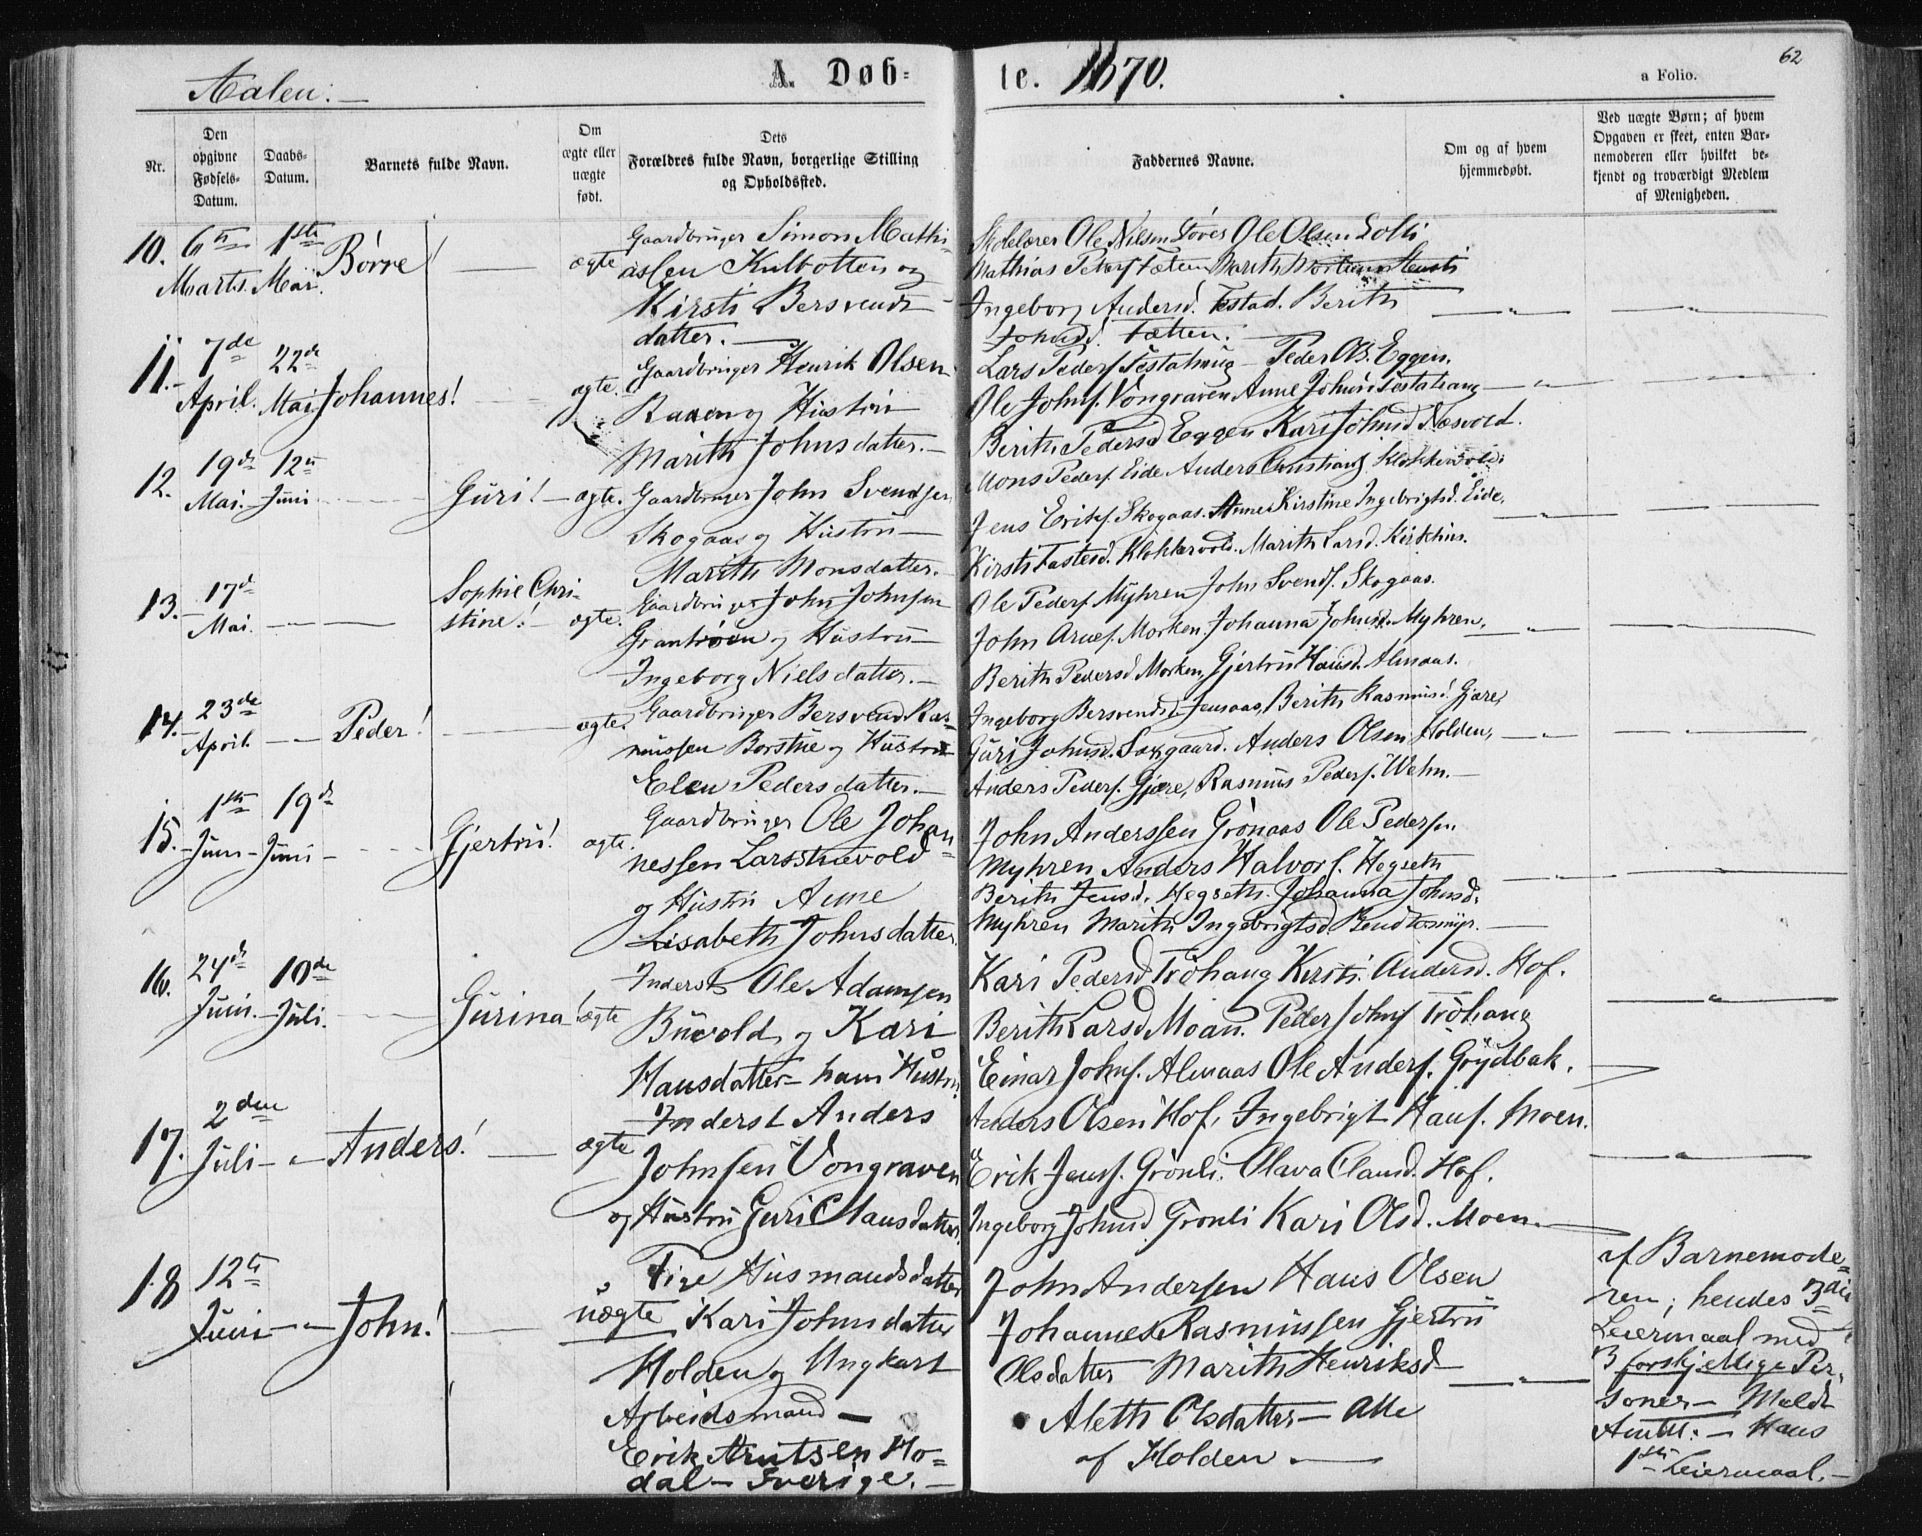 Aalen.
A. Døb-
te. 1870.
62
a Folio.
Nr.
Den
opgivne
Fødsels-
Datum.
Daabs-
Datum.
Barnets fulde Navn.
Om
ægte eller
uægte
født.
Dets
Forældres fulde Navn, borgerlige Stilling
og Opholdssted.
Faddernes Navne.
Om og af hvem
hjemmedøbt.
Ved uægte Børn; af hvem
Opgaven er skeet, enten Bar-
nemoderen eller hvilket be-
kjendt og troværdigt Medlem
af Menigheden.
10. 6te Marts. 1ste Mai. Börre! ægte
Gaardbruger Simon Mathi-
aslen Kulbotten og
Kirsti Bersvends
datter.
Skolelærer Ole Nilsen Ole Olsen
Mathias Peders. Tætten Marith
Ingeborg Andersd. Berith
Johnsd. Tætten.
11. 7de April. 22de Mai Johannes! ægte.
Gaardbruger Henrik Olsen
Raaen og Hustru
Marith Johnsdatter.
Lars Peders. Peder Ols. Eggen.
Ole Johns. Vongraven Anne Johnsd.
Berith Pedersd Eggen Kari Johnsd Næsvold.
12. 19de Mai. 12te Juni Guri! ægte.
Gaardbruger John Svendsen
Skogaas og Hustru
Marith Monsdatter.
Mons Peders. Eide Anders Christians. Klokkervold.
Jens Eriks. Skogaas. Anne Kirstine Ingebrigtsd. Eide,
Kirsti Fastesd. Klokkervold. Marith Larsd. Kirkhus.
13. 17de Mai. Sophie Chri-
stine! ægte.
Gaardbruger John Johnsen
Grantröen og Hustru
Ingeborg Nielsdatter.
Ole Peders. Myhren John Svends. Skogaas.
John Arnes. Morken. Johanna Johnsd. Myhren,
Berith Pedersd Morken, Gjertru Hansd. Almaas.
14. 23de April. Peder! ægte.
Gaardbruger Bersvend Ras-
mussen Borstue og Hustru
Elen Pedersdatter.
Ingeborg Bersvendsd. Jensaas, Berith Rasmusd. Gjære,
Guri Johnsd. Anders Olsen Holden,
Anders Peders. Gjære, Rasmus Peders. Wehn.
15. 1ste Juni 19de Juni Gjertru! ægte.
Gaardbruger Ole Johan-
nessen
og Hustru Anne
Lisabeth Johnsdatter.
John Anderssen Grönaas Ole Pedersen
Myhren Anders Halvors. Hegseth
Berith Jensd. Hegseth. Johanna Johnsd.
Myhren Marith Ingebrigtsd
16. 24de Juni. 10de Juli. Gurina! ægte
Inderst Ole Adamsen
Buvold og Kari
Hansdatter hans Hustru
Kari Pedersd Tröhaug Kirsti Andersd. Hof.
Berith Larsd Moan. Peder Johns Tröhaug
Einar Johns. Almaas Ole Anders. Göydbak.
17. 2den Juli Anders! ægte
Inderst Anders
Johnsen Vongraven
og Hustru Guri Clausdatter.
Anders Olsen Hof, Ingebrigt Hans. Moen.
Erik Jens. Grönli. Olava Clausd. Hof.
Ingeborg Johnsd Grönli Kari Olsd. Moen.
18 12te Juni John! uægte
Pige Husmandsdatter
Kari Johnsdatter
Holden og Ungkarl
Arbeidsmand
Erik Arutsen Ho-
dal Sverige.
John Andersen Hans Olsen
Johannes Rasmussen Gjertru
Olsdatter Marith Henriksd
Aleth Olsdatter — Alle
af Holden
af Barnemode-
ren; hendes 3die
Leiermaal med
3 forskjellige Per-
soner — Meldt
Amtm. — Hans
1ste Leiermaal.